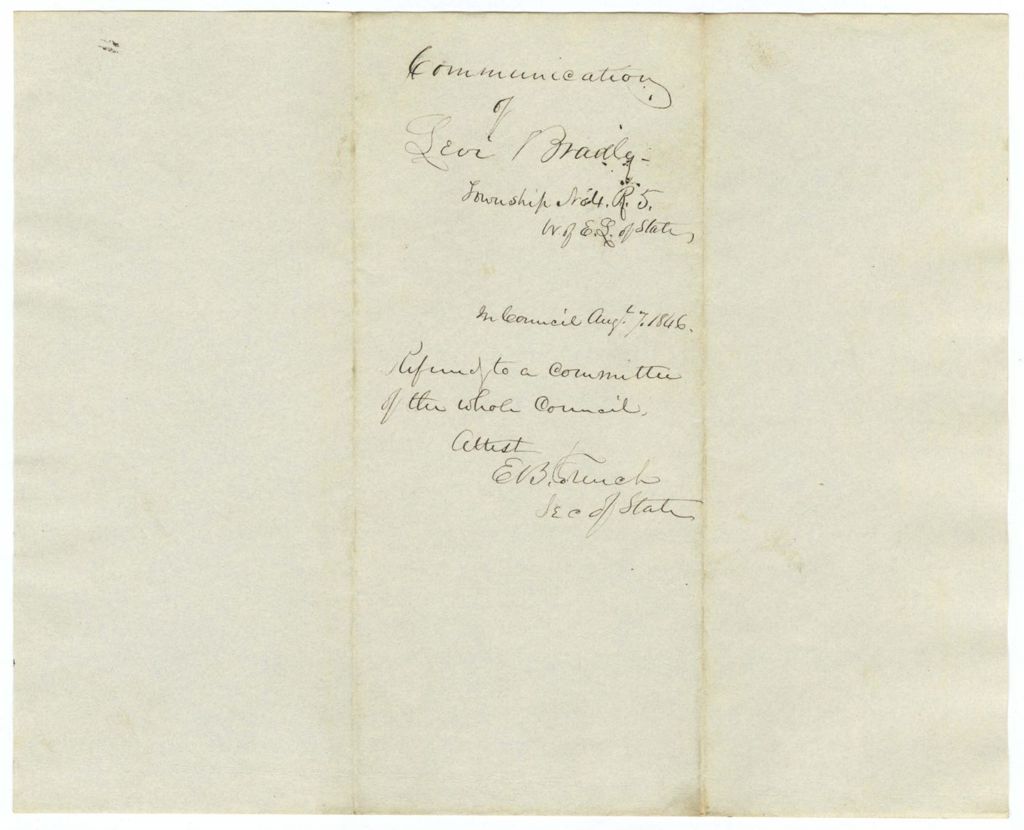 Communication
of
Levi Bradly -
Township No 4. R. 5.
W of E. L. of State,
In Council Augt. 7. 1846.
Referred to a Committee
of the whole Council.
Attest
E B. French
Sec of State